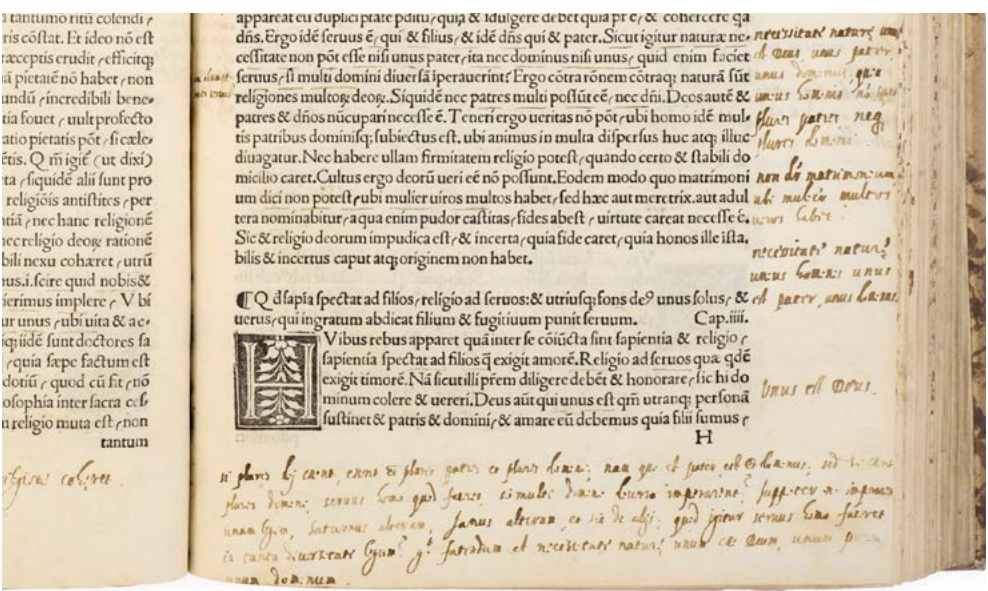 a tantumo ritū colendi
ris cōstat. Et ideo nō est
ræceptis erudit, efficitq;
iā pietatē nō habet, non
undū, incredibili bene-
tia fouet, uult profecto
atio pietatis pōt, si cæle-
ētis. Q m̄ igiē (ut dixi)
ta, siquidē alii sunt pro
religiōis antistites, per
ntiā, nec hanc religionē
nec religio deoꝝ rationē
bili nexu cohæret, utrū
nus.i.scire quid nobis &
ierimus implere, V bi
ur unus, ubi uita & ac-
iq; iidē sunt doctores sa
, quia sæpe factum est
dotiū, quod cū fit, nō
osophia inter sacra ces-
m religio muta est, non
tantum
appareat eū duplici ptāte pditū, quia & īdulgere debet quia pr̄ ē, & cohercere qa
dn̄s. Ergo idē seruus ē, qui & filius, & idē dn̄s qui & pater. Sicut igitur naturæ ne-
cessitate non pōt esse nisi unus pater, ita nec dominus nisi unus, quid enim faciet
seruus, si multi domini diuersā iperauerint? Ergo cōtra rōnem cōtraq; naturā sūt
religiones multoꝝ deoꝝ. Siquidē nec patres multi possūt eē, nec dn̄i. Deos autē &
patres & dn̄os nūcupari necesse ē. Teneri ergo ueritas nō pōt, ubi homo idē mul-
tis patribus dominisq; subiectus est, ubi animus in multa dispersus huc atq; illuc
diuagatur. Nec habere ullam firmitatem religio potest, quando certo & stabili do
micilio caret. Cultus ergo deorū ueri eē nō possunt. Eodem modo quo matrimoni
um dici non potest, ubi mulier uiros multos habet, sed hæc aut meretrix, aut adul
tera nominabitur, a qua enim pudor castitas, fides abest, uirtute careat necesse ē.
Sic & religio deorum impudica est, & incerta, quia fide caret, quia honos ille ista,
bilis & incertus caput atq; originem non habet.
¶ Q d sapīa spectat ad filios, religio ad seruos: & utriusq; fons de⁹ unus solus, &
uerus, qui ingratum abdicat filium & fugitiuum punit seruum. Cap.iiii.
H Vibus rebus apparet quā inter se cōiūcta sint sapientia & religio,
sapientia spectat ad filios q̄ exigit amorē. Religio ad seruos quæ qdē
exigit timorē. Nā sicut illi prēm diligere debēt & honorare, sic hi do
minum colere & uereri. Deus aūt qui unus est qm̄ utranq; personā
sustinet & patris & domini, & amare eū debemus quia filii sumus,
H
necessitate naturę
est Deus unus pater
unus dominus, quia
unus homo
plures patres neq
plures domini
non dī matrimonium
ubi mulier multos
uiros habet.
necessitate naturę
unus hominis unus
est pater, unus dominus.
Unus est Deus.
religioni cohęret.
si plures dij essent, essent & plures patres et plures domini: nam qui est pater est & dominus, sed si essent
plures domini seruus homo quid faceret si multi domini diuersa imperarent?
unam legem, Saturnus alteram, Janus alteram, et sic de alijs: quid igitur seruus homo faceret
in tanta diuersitate legum? fatendum est necessitate naturę unum esse Deum, unum
unum dominum.